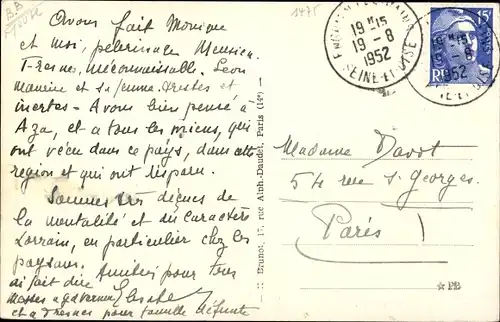 Avons fait Monique
et moi, pélerinage Mensien.
Fresnes, méconnaissable. Leon
Maurice et sa femme. Tristes et
inertes - Avons bien pensé à
Aza, et à tous les miens, qui
ont vécu dans ce pays, dans cette
région et qui ont disparu.
Sommes très déçues de
la mentalité et du caractère
Lorrain, en particulier chez les
paysans. Amitiés pour tous
ai fait dire
messes
et à Fresnes pour famille défunte
Brunot, 17, rue Alph.-Daudet, Paris (14e)
1475
19 H 15
19-8
1952
SEINE-ET-OISE
15F
RF
19 H 15
19-8
1952
Madame Davot
54 rue St Georges.
Paris
PB